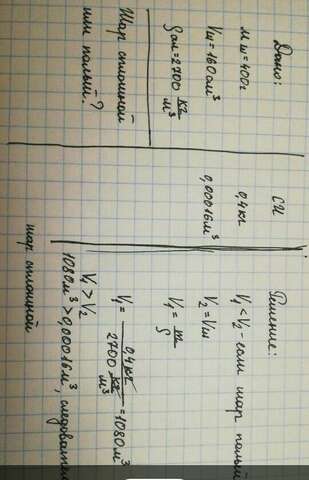 Дано:
mш = 400г
Vш = 160см³
ρал = 2700 кг/м³
Шар сплошной
или полый?
СИ
0,4кг
0,00016м³
Решение:
V₁ < V₂ - если шар полый
V₂ = Vш
V₁ = m/ρ
V₁ = 0,4кг / 2700 кг/м³ = 1080м³
V₁ > V₂
1080м³ > 0,00016м³, следовательн
шар сплошной